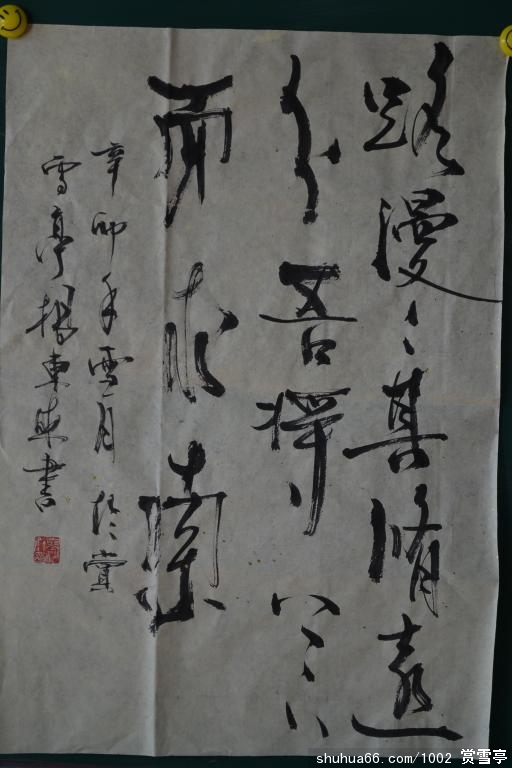 路漫漫其脩远
兮吾将上下
而求索
辛卯年雪月於赏
雪亭杨东来书
shuhua66.com/1002 赏雪亭